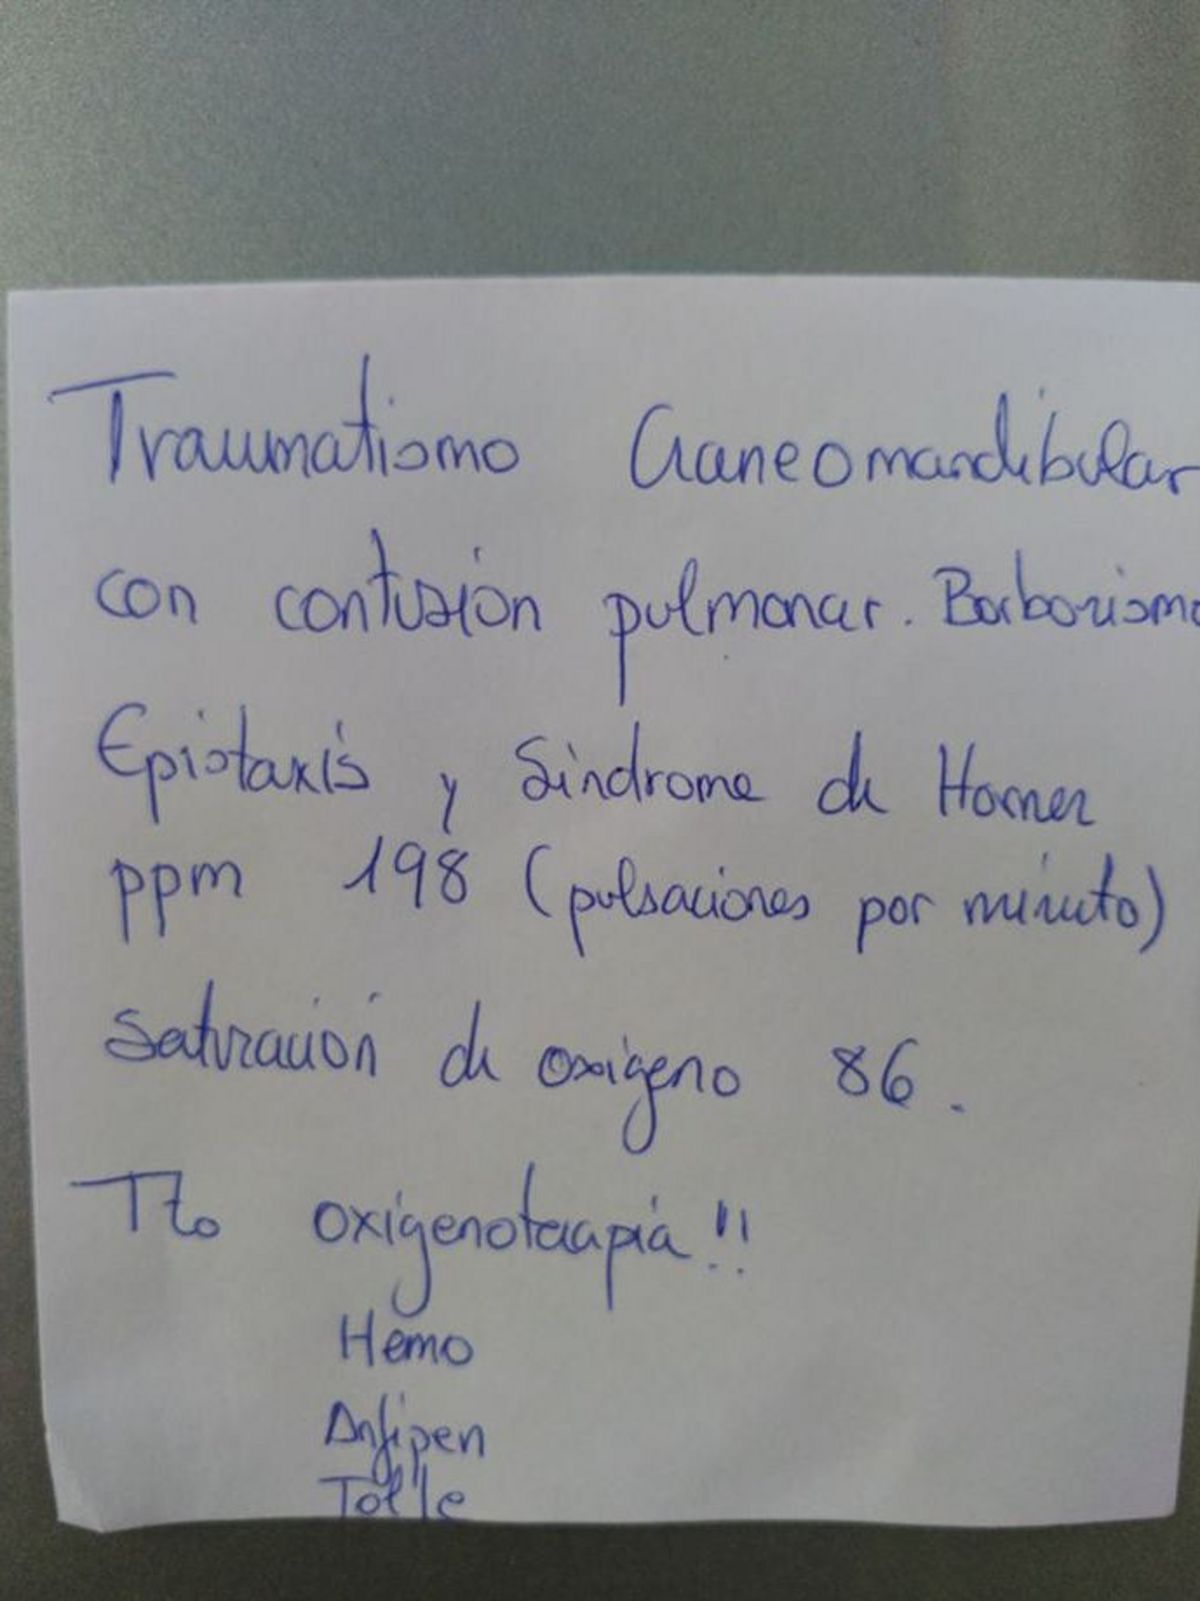 Traumatismo Craneomandibular
con contusión pulmonar. Borborismo
Epistaxis y Síndrome de Horner
ppm 198 (pulsaciones por minuto)
saturación de oxígeno 86.
Tto oxigenoterapia!!
Hemo